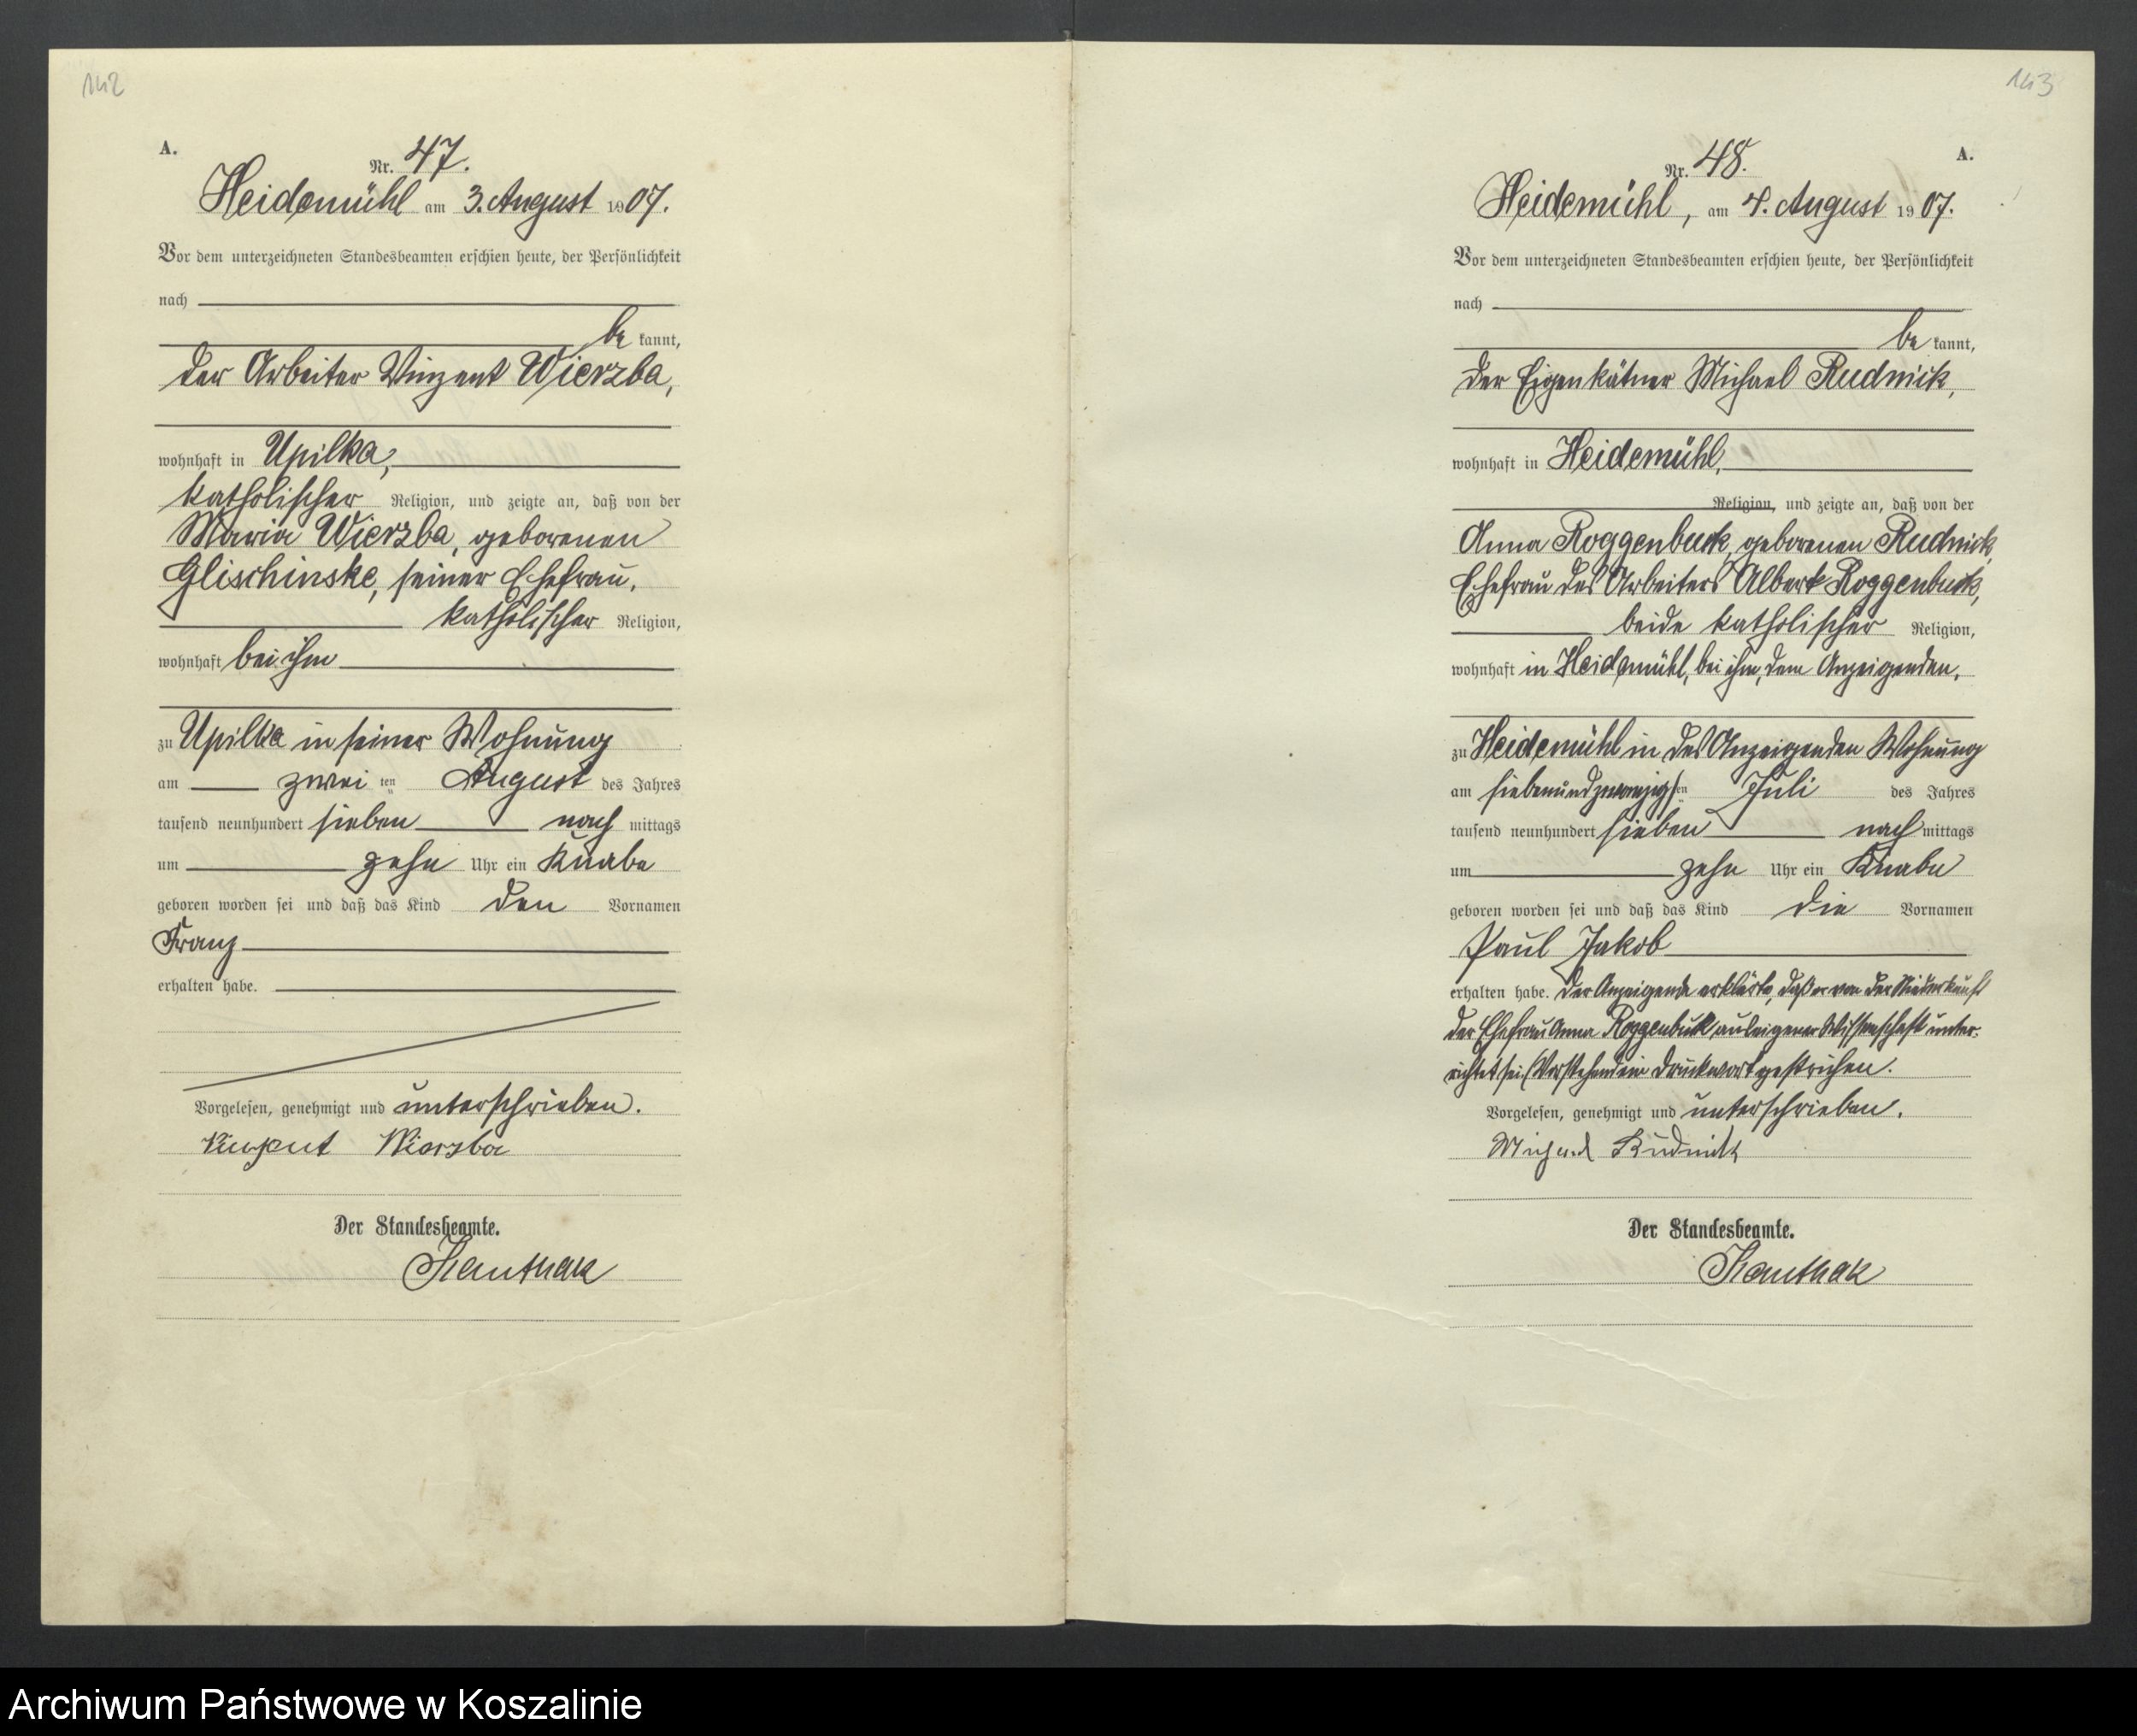 142
A.
Nr. 47.
Heidemühl am 3. August 1907.
Vor dem unterzeichneten Standesbeamten erschien heute, der Persönlichkeit
nach
be kannt,
der Arbeiter Vinzent Wierzba,
wohnhaft in Upilka,
katholischer Religion, und zeigte an, daß von der
Maria Wierzba, geborenen
Glischinske, seiner Ehefrau,
katholischer Religion,
wohnhaft bei ihm
zu Upilka in seiner Wohnung
am zwei ten August des Jahres
tausend neunhundert sieben nach mittags
um zehn Uhr ein Knabe
geboren worden sei und daß das Kind den Vornamen
Franz
erhalten habe.
Vorgelesen, genehmigt und unterschrieben.
Vinzent Wierzba
Der Standesbeamte.
Kanthak
143
A.
Nr. 48.
Heidemühl, am 4. August 1907.
Vor dem unterzeichneten Standesbeamten erschien heute, der Persönlichkeit
nach
be kannt,
der Eigenkätner Michael Rudnick,
wohnhaft in Heidemühl,
Religion, und zeigte an, daß von der
Anna Roggenbuck, geborenen Rudnick,
Ehefrau des Arbeiters Albert Roggenbuck,
beide katholischer Religion,
wohnhaft in Heidemühl, bei ihm, dem Anzeigenden,
zu Heidemühl in des Anzeigenden Wohnung
am siebenundzwanzigsten Juli des Jahres
tausend neunhundert sieben nach mittags
um zehn Uhr ein Knabe
geboren worden sei und daß das Kind die Vornamen
Paul Jakob
erhalten habe. Der Anzeigende erklärte, daß er von der Niederkunft
der Ehefrau Anna Roggenbuck aus eigener Wissenschaft unter-
richtet sei. Vorstehend ein Druckwort gestrichen.
Vorgelesen, genehmigt und unterschrieben.
Michael Rudnick
Der Standesbeamte.
Kanthak
Archiwum Państwowe w Koszalinie